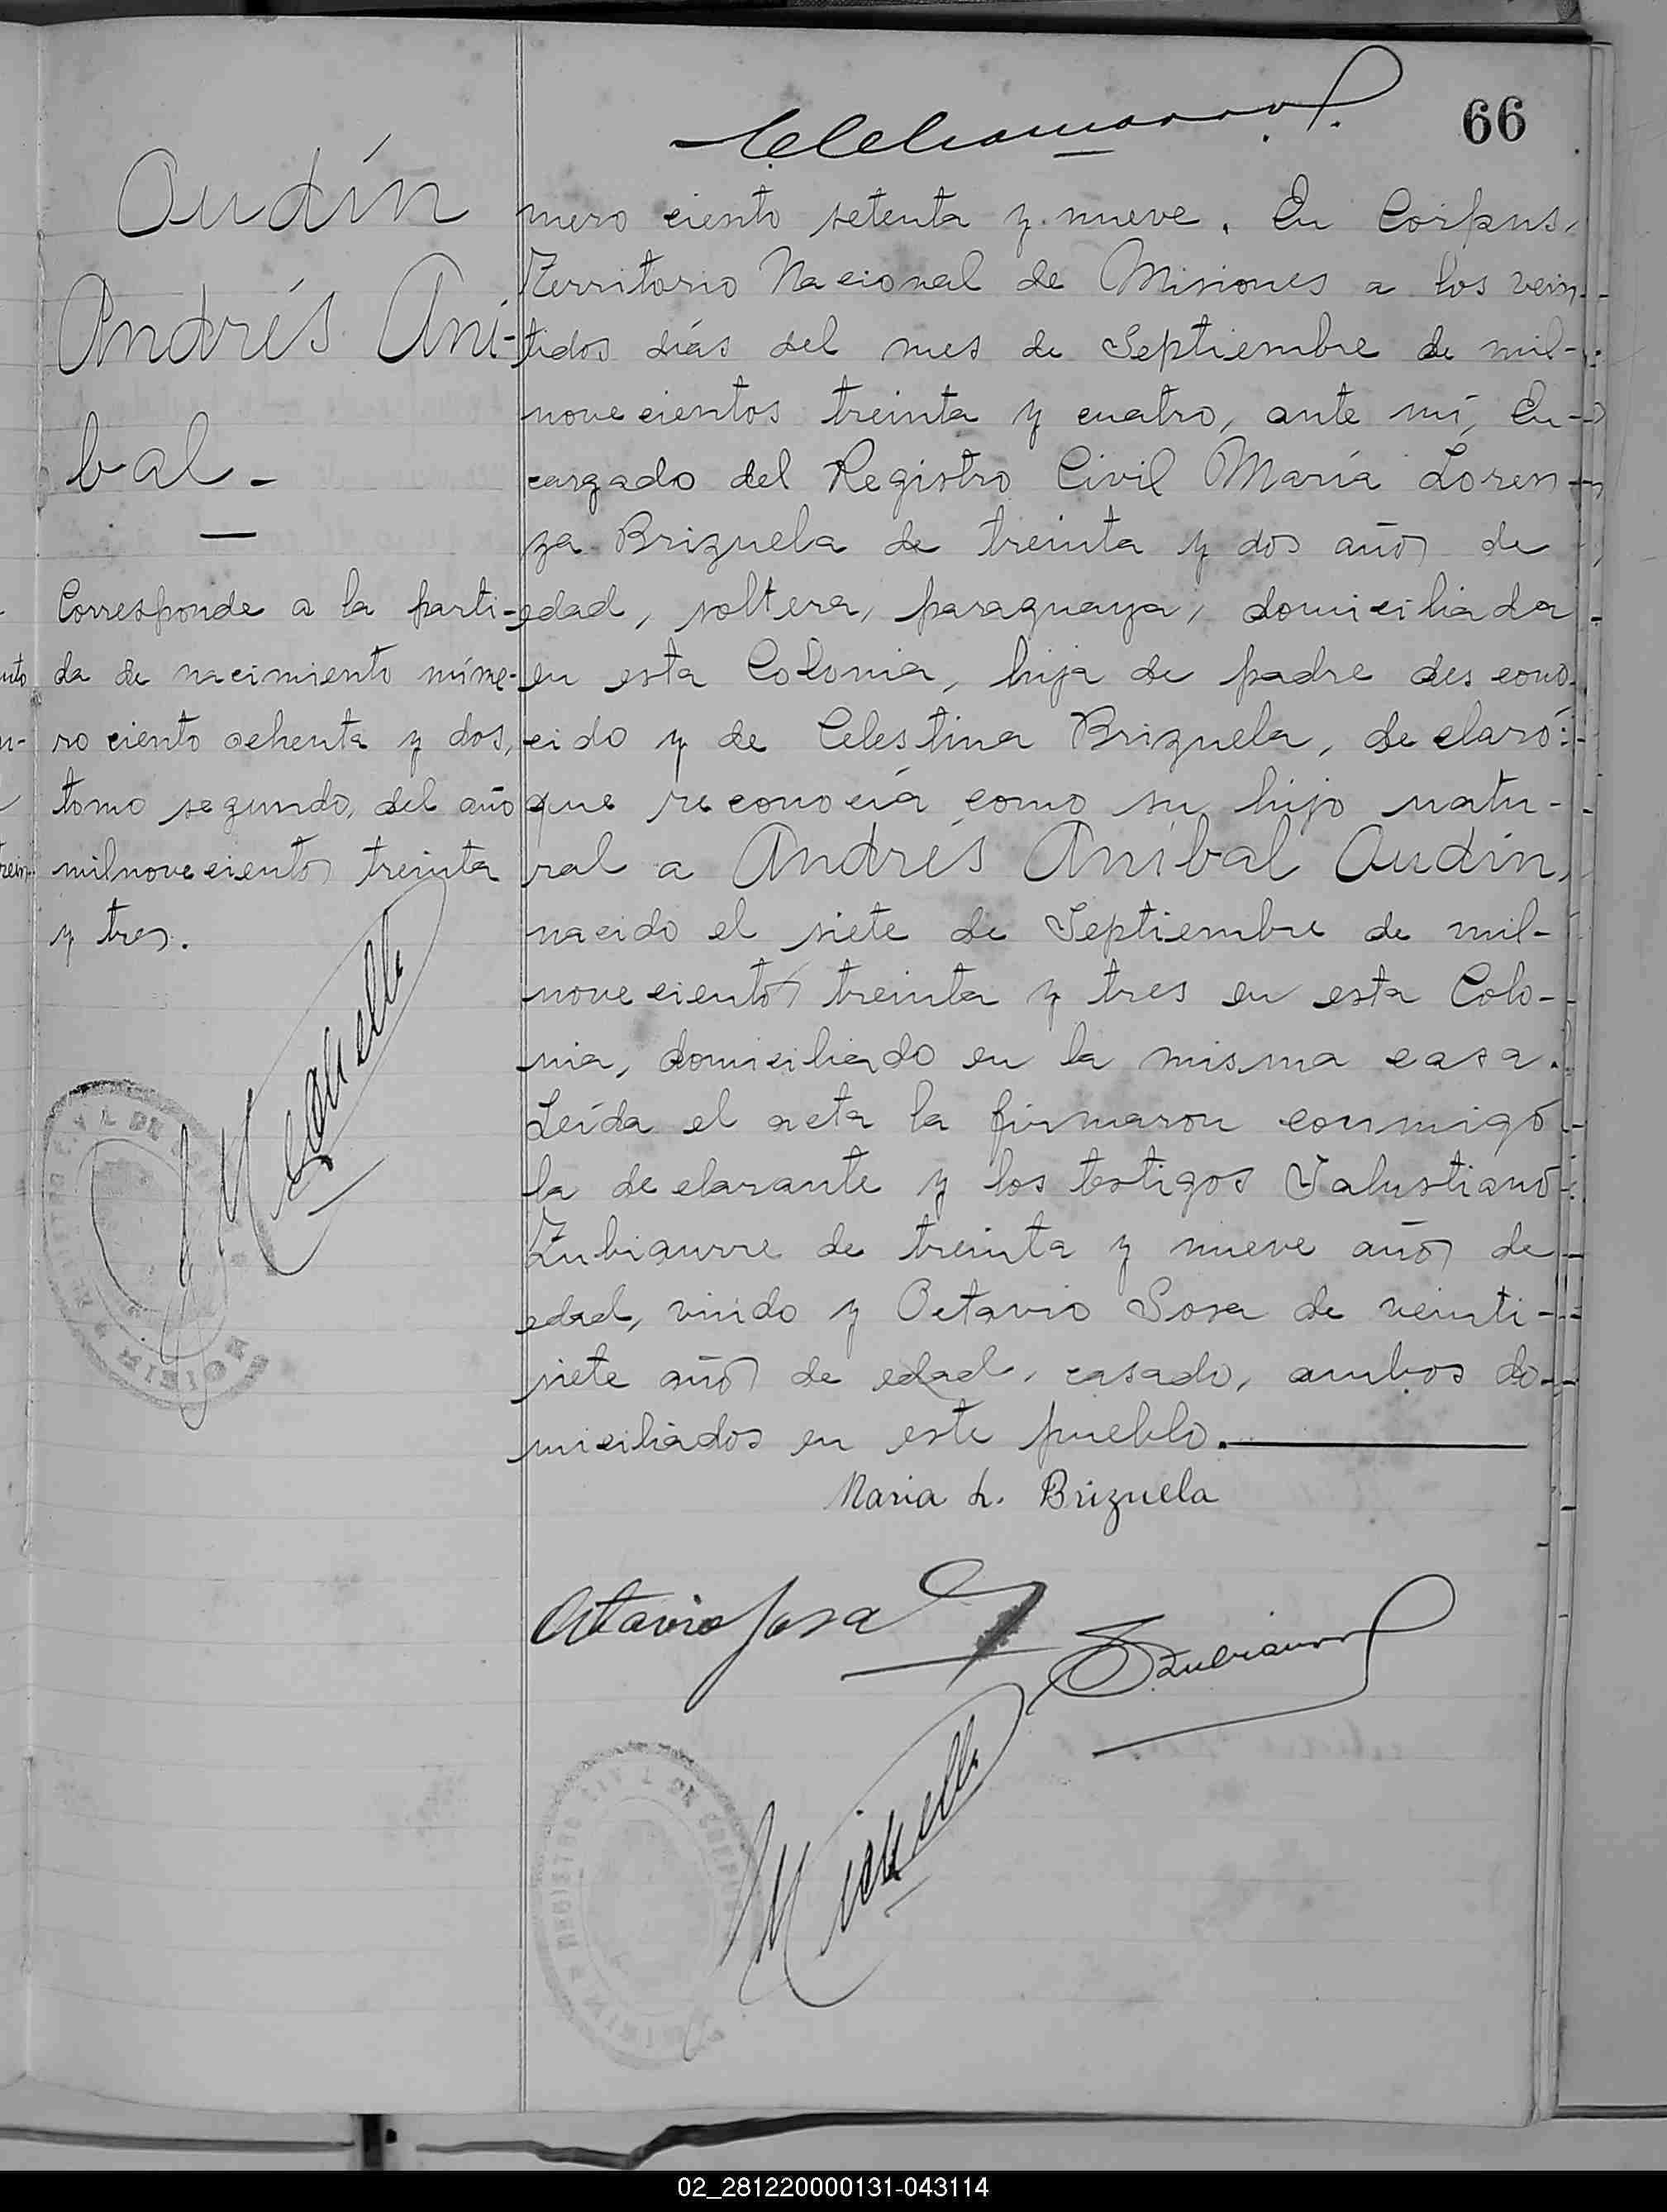 66
Oudín
Andrés Aní-
bal-
Corresponde a la parti-
da de nacimiento núme-
ro ciento ochenta y dos,
tomo segundo, del año
milnovecientos treinta
y tres.
mero ciento setenta y nueve. En Corpus,
Territorio Nacional de Misiones a los vein-
tidos días del mes de Septiembre de mil-
novecientos treinta y cuatro, ante mí, En-
cargado del Registro Civil María Loren-
za Brizuela de treinta y dos años de
edad, soltera, paraguaya, domiciliada
en esta Colonia, hija de padre descono-
cido y de Celestina Brizuela, declaró:
que reconocía como su hijo natu-
ral a Andrés Aníbal Oudín,
nacido el siete de Septiembre de mil-
novecientos treinta y tres en esta Colo-
nia, domiciliado en la misma casa.
Leída el acta la firmaron conmigo
la declarante y los testigos Salustiano
Zubiaurre de treinta y nueve años de
edad, viudo y Octavio Sosa de veinti-
siete años de edad, casado, ambos do-
miciliados en este pueblo.
Maria L. Brizuela
Octavio Sosa
S Zubiaurre
REGISTRO CIVIL DE CORPUS
MISIONES
02_281220000131-043114